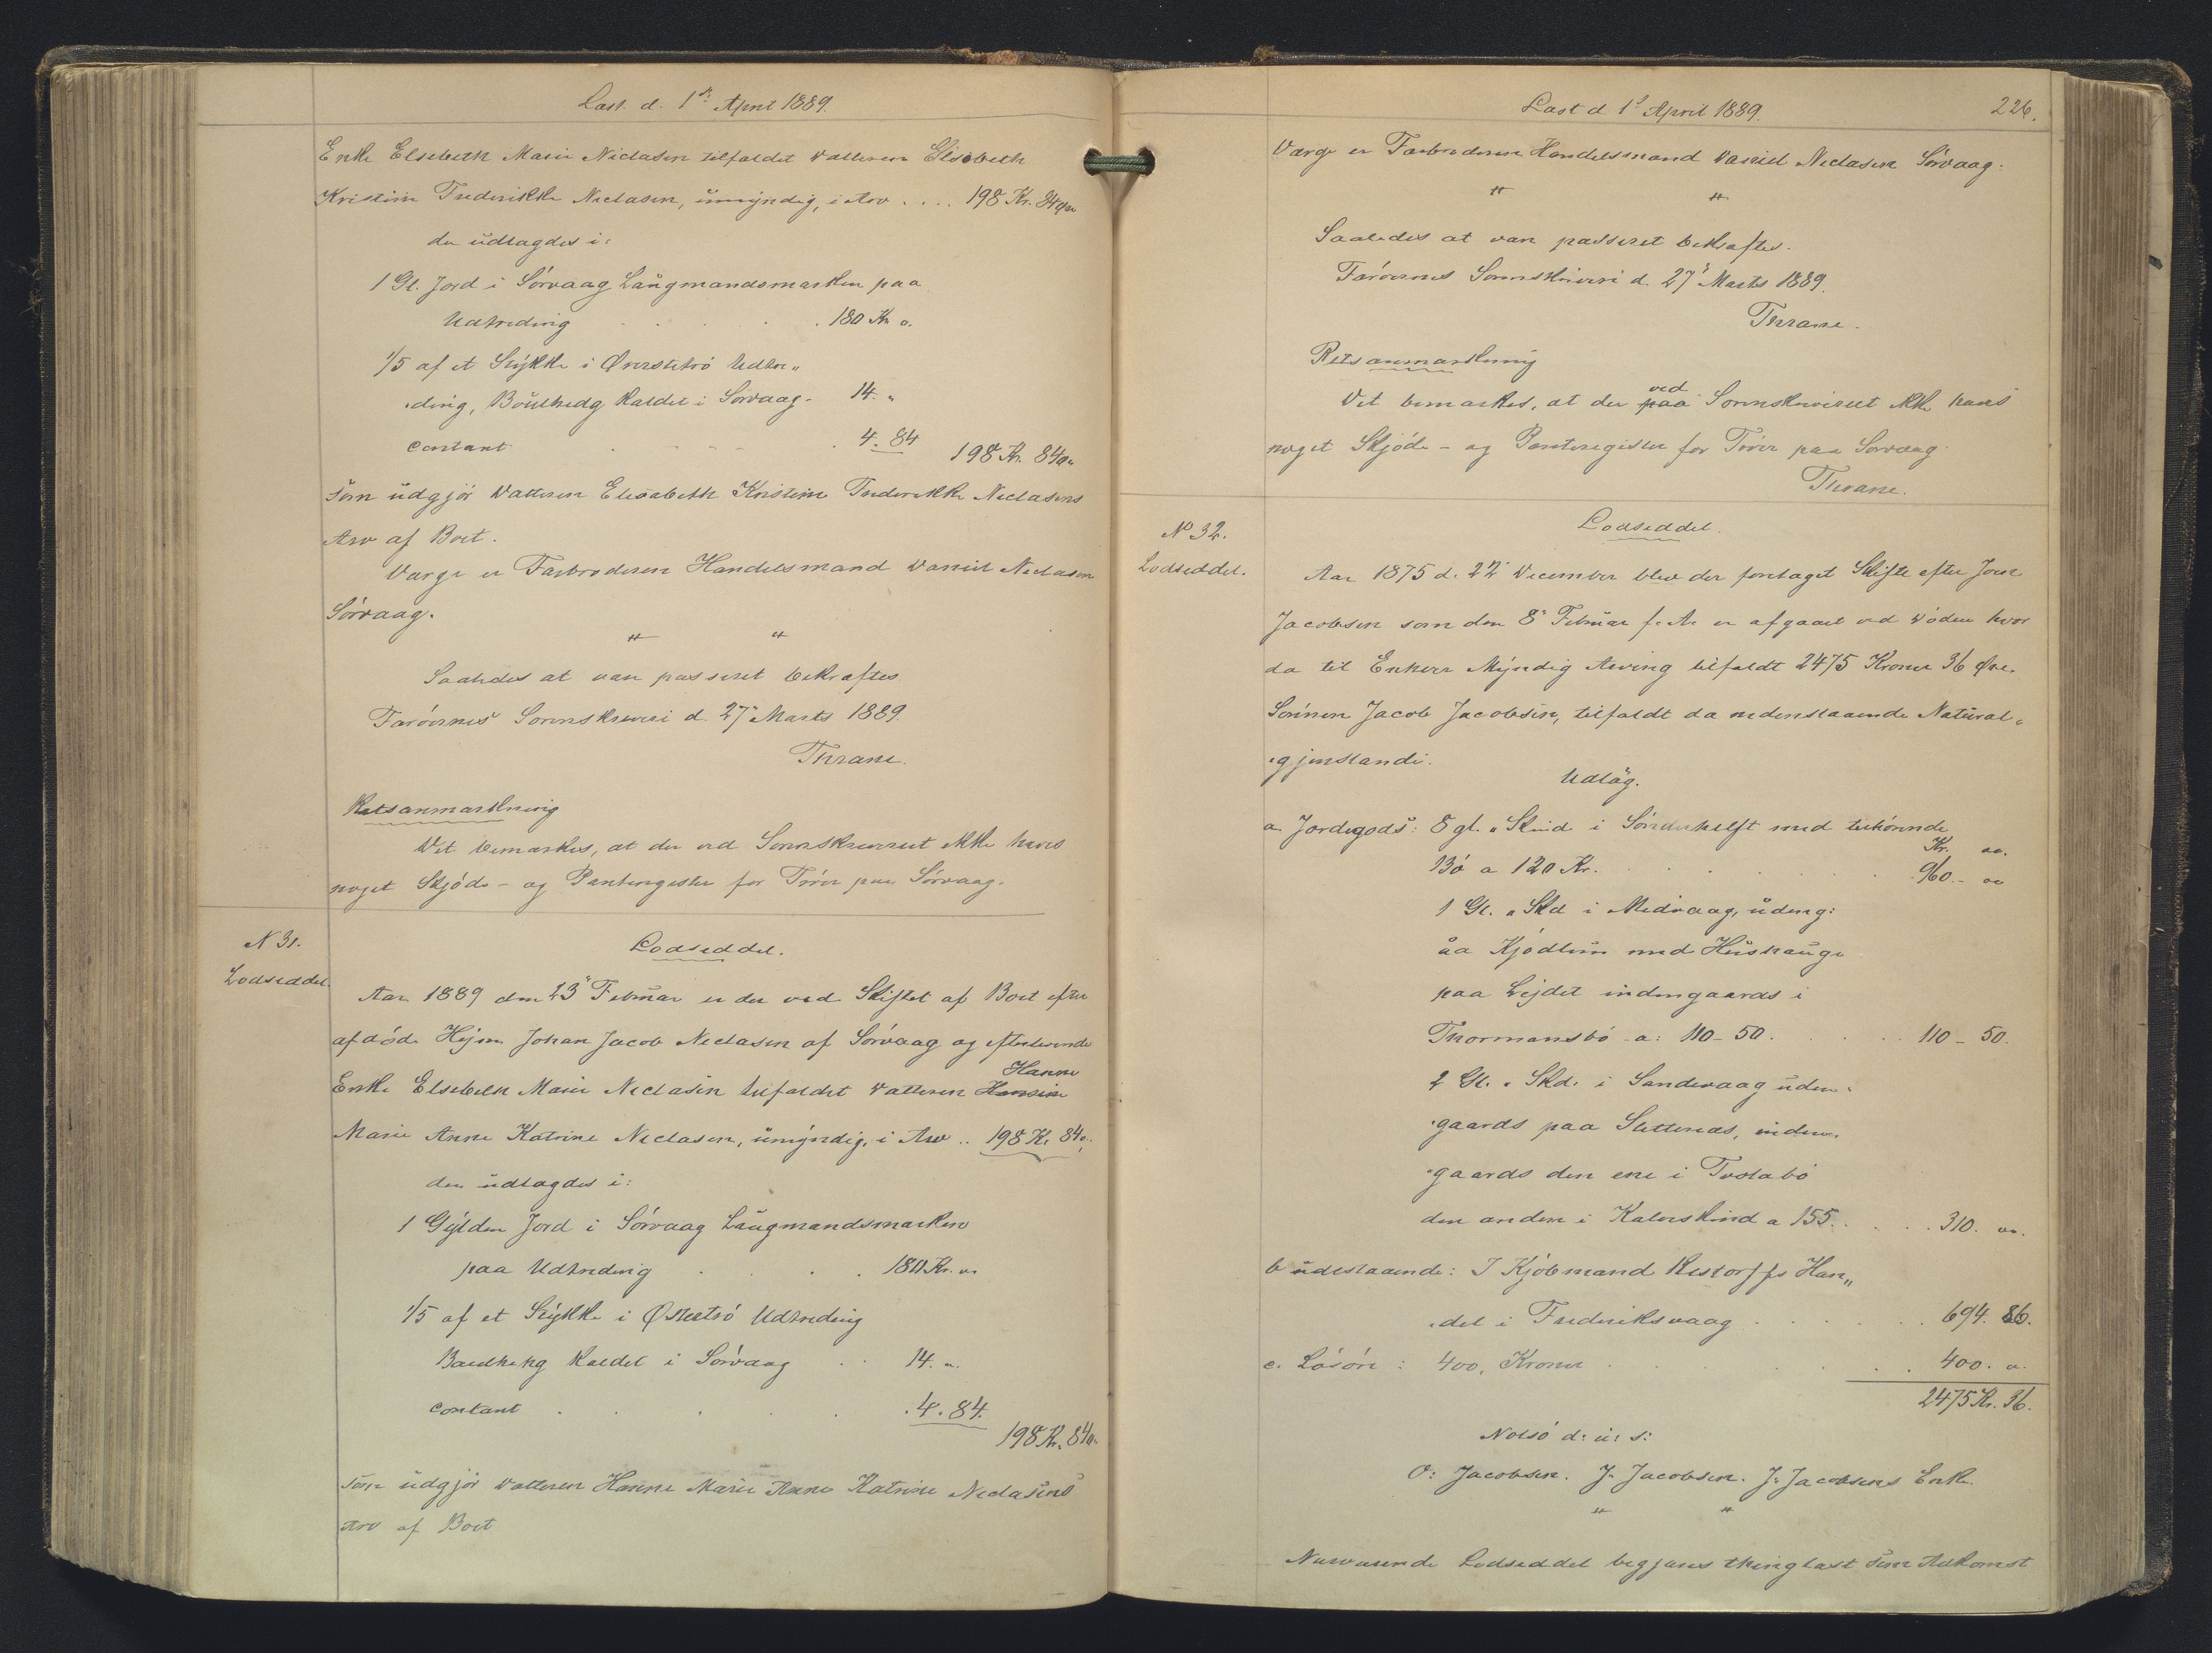 Læst d. 1ste April 1889.
Enke Elsebeth Marie Niclasen tilfaldet Datteren Elisabeth
Kristine Frederikke Niclasen, umyndig, i Arv .... 198 Kr. 84 Øre
der udlagdes i:
1 Gl. Jord i Sörvaag Laugmandsmarken paa
Udtreding . . . . 180 Kr. o.
1/5 af et Stykke i Øverstetrö Udtre„
„ding, Böulhedg kaldet i Sörvaag - 14. „
contant . . . . 4. 84
198 Kr. 84 ø.
som udgjör Datteren Elisabeth Kristine Frederikke Niclasens
Arv af Boet.
Værge er Farbroderen Handelsmand Daniel Niclasen
Sörvaag.
" "
Saaledes at være passeret bekræftes.
Færöernes Sorenskriveri d. 27' Marts 1889.
Thrane.
Retsanmærkning
Det bemærkes, at der ved Sorenskriveriet ikke haves
noget Skjöde- og Panteregister for Törer paa Sörvaag.
N 31.
Lodseddel.
Lodseddel.
Aar 1889 den 23' Februar er der ved Skiftet af Boet efter
afdöde Hejne Johan Jacob Niclasen af Sörvaag og efterlevende
Hanne
Enke Elsebeth Marie Niclasen tilfaldet Datteren Hansine
Marie Anne Katrine Niclasen, umyndig, i Arv .. 198 Kr. 84 ø.
der udlagdes i:
1 Gylden Jord i Sörvaag Laugmandsmarken
paa Udtreding . . . 180 Kr. „
1/5 af et Stykke i Østetrö Udtreding
kaldet i Sörvaag . . 14. „
contant . . . . . 4. 84.
198 Kr. 84 ø.
som udgjör Datteren Hanne Marie Anne Katrine Niclasens
Arv af Boet
Læst d 1' April 1889.
226.
Værge er Farbroderen Handelsmand Daniel Niclasen Sörvaag.
" "
Saaledes at være passeret bekræftes.
Færöernes Sorenskriveri d. 27' Marts 1889.
Thrane.
Retsanmærkning
ved
Det bemærkes, at der paa Sorenskriveriet ikke haves
noget Skjöde- og Panteregister for Törer paa Sörvaag.
Thrane.
No 32.
Lodseddel.
Lodseddel.
Aar 1875 d. 22' December blev der foretaget Skifte efter Joen
Jacobsen som den 8' Februar f. A. er afgaaet ved Döden hvor
da til Enhver Myndig Arving tilfaldt 2475 Kroner 36 Øre.
Sönnen Jacob Jacobsen, tilfaldt da nedenstaaende Natural„
„gjenstande.
Udlæg.
a Jordegods: 8 gl. „ Skind i Sönderhelft med tilhörende
Kr. øre.
Bö a 120 Kr. . . . . . 960.- „
1 Gl. „ Skd i Midvaag, udeng:
aa Kjödlum med Hüshauge
paa Lejdet indengaards i
Thormansbö a: 110-50. . . . . 110 - 50.
2 Gl. „ Skd. i Sandevaag uden„
„gaards paa Slettenæs, inden„
„gaards den ene i Tvolabö
den anden i Kalvskind a 155. . . . . 310. „
b udestaaende: I Kjöbmand Restorffs Han„
„del i Frederiksvaag . . . . . 694. 86.
c. Lösöre : 400, Kroner . . . . . 400. „
2475 Kr. 36.
Nolsö d: u: s:
O: Jacobsen. J. Jacobsen. J: Jacobsens Enke.
" "
Nærværende Lodseddel begjæres thinglæst som Adkomst